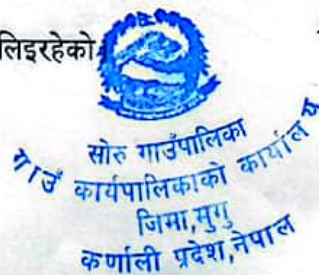 लिइरहेको
सोरु गाउँपालिका
गाउँ कार्यपालिकाको कार्यालय
जिमा,मुगु
कर्णाली प्रदेश,नेपाल